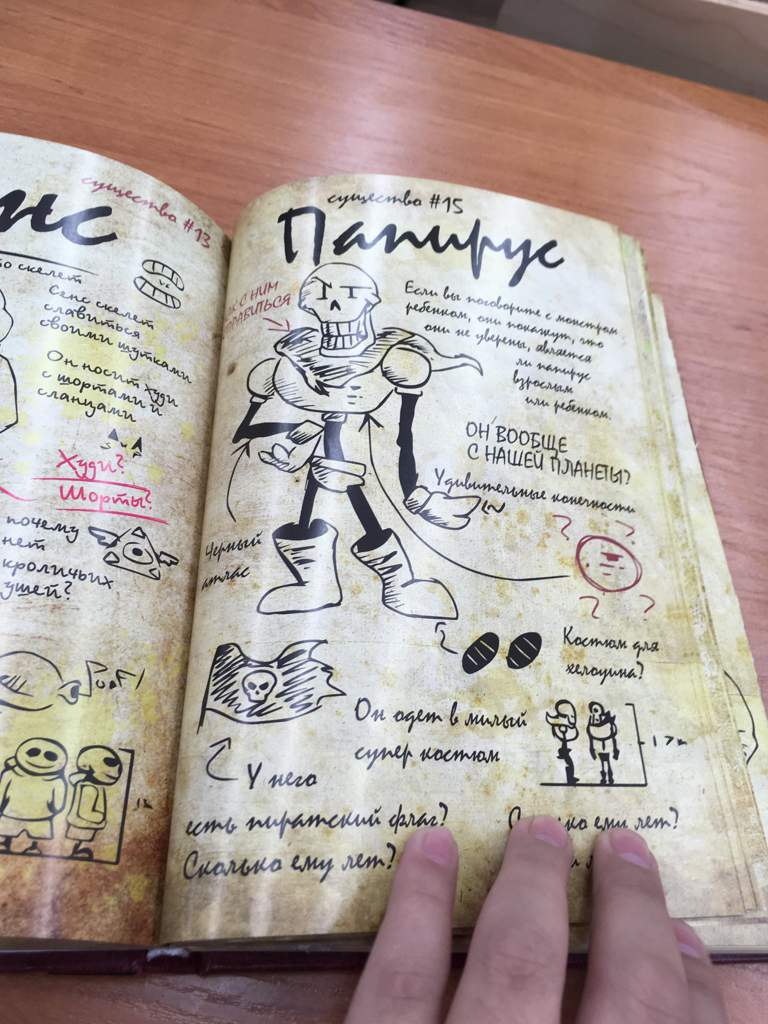 существо #13
скелет
Сенс скелет
славиться
своими шутками
Он носит худи
с шортами и
сланцами
Худи?
Шорты?
почему
нет
кроличьих
ушей?
Puff
существо #15
Папирус
с ним
Если вы поговорите с монстром
ребенком, они покажут, что
они не уверены, является
ли папирус
взрослым
или ребенком.
ОН ВООБЩЕ
С НАШЕЙ ПЛАНЕТЫ?
Удивительные конечности
Черный
атлас
Костюм для
хелоуина?
Он одет в милый
супер костюм
У него
есть пиратский флаг?
Сколько ему лет?
ему лет?